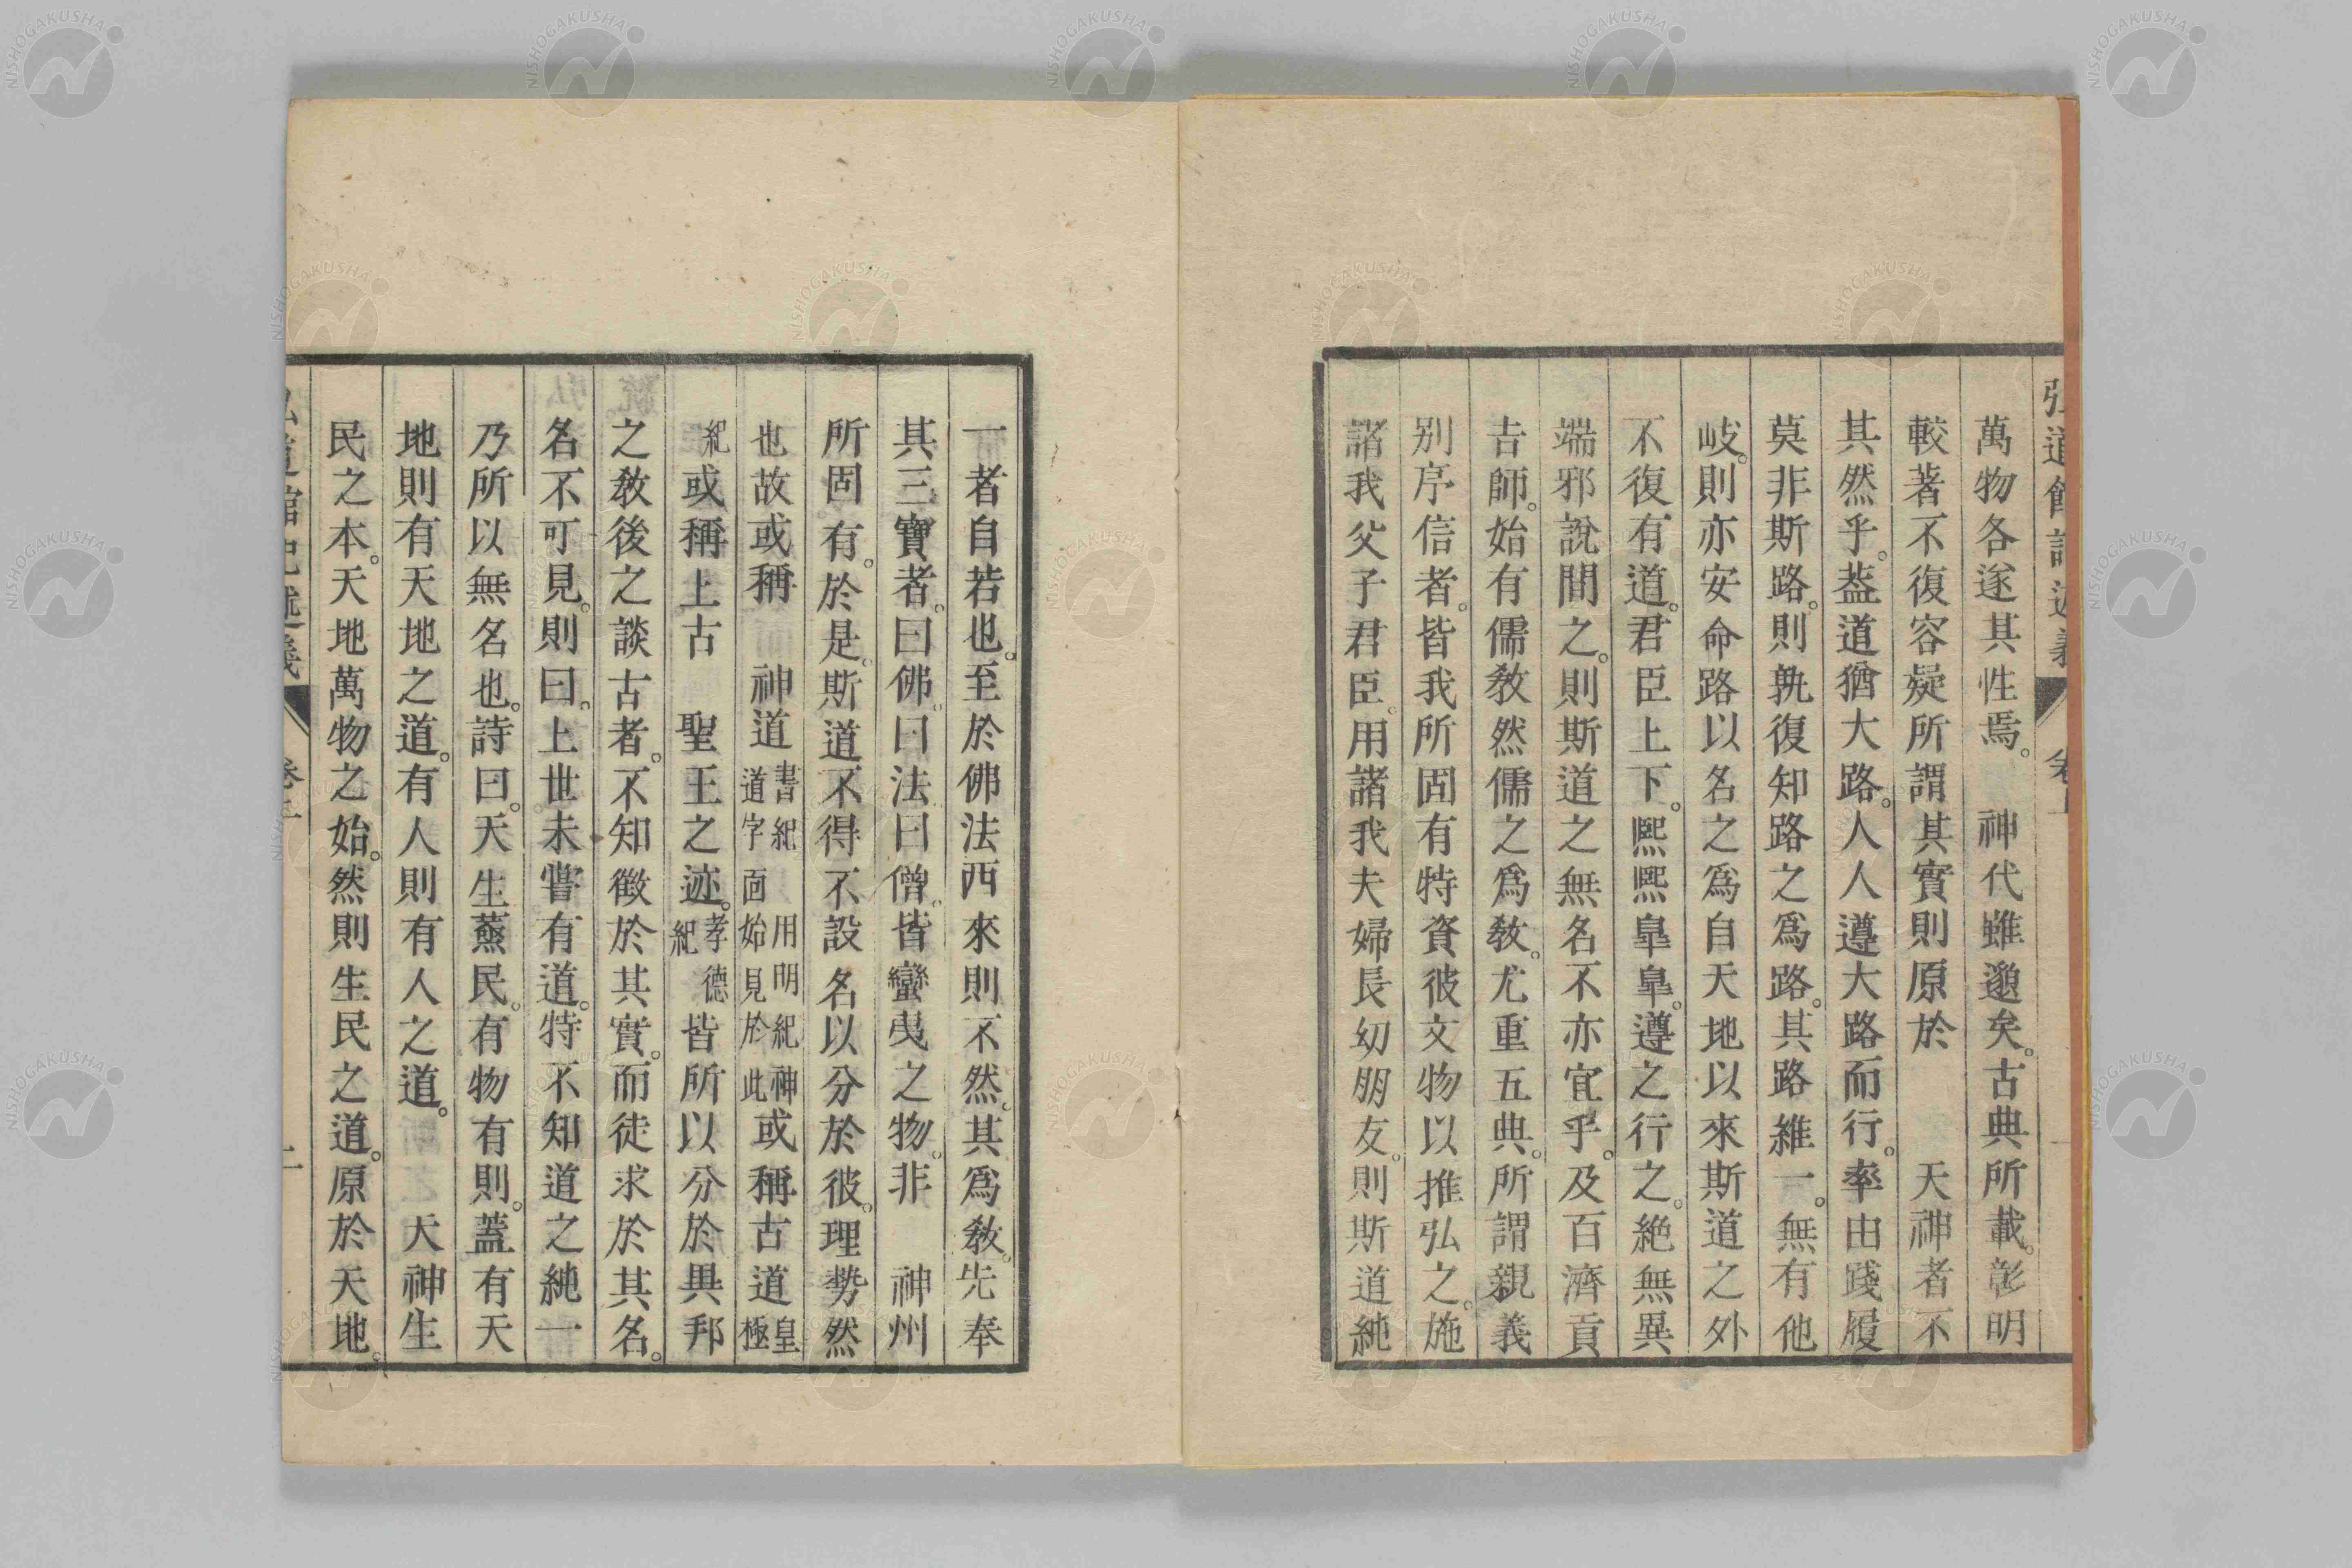 弘道館記述義 卷上 一
萬物各遂其性焉。 神代雖邈矣。古典所載。彰明
較著不復容疑所謂其實則原於 天神者不
其然乎。葢道猶大路。人人遵大路而行。率由踐履
莫非斯路。則孰復知路之爲路。其路維一。無有他
岐。則亦安命路以名之爲自天地以來斯道之外
不復有道。君臣上下。熙熙皐皐。遵之行之。絶無異
端邪說間之。則斯道之無名不亦宜乎。及百濟貢
吉師。始有儒敎然儒之爲敎。尤重五典。所謂親義
別序信者。皆我所固有特資彼文物以推弘之。施
諸我父子君臣。用諸我夫婦長幼朋友。則斯道純
一者自若也。至於佛法西來則不然。其爲敎。先奉
其三寶者。曰佛。曰法曰僧。皆蠻夷之物。非 神州
所固有。於是。斯道不得不設名以分於彼。理勢然
也故或稱 神道書紀用明紀神道字面始見於此或稱古道皇極
紀或稱上古 聖王之迹。孝德紀皆所以分於異邦
之敎後之談古者。不知徵於其實。而徒求於其名。
名不可見。則曰。上世未嘗有道。特不知道之純一
乃所以無名也。詩曰。天生蒸民。有物有則。蓋有天
地則有天地之道。有人則有人之道。 天神生
民之本。天地萬物之始。然則生民之道。原於天地。
弘道館記述義 卷上 二